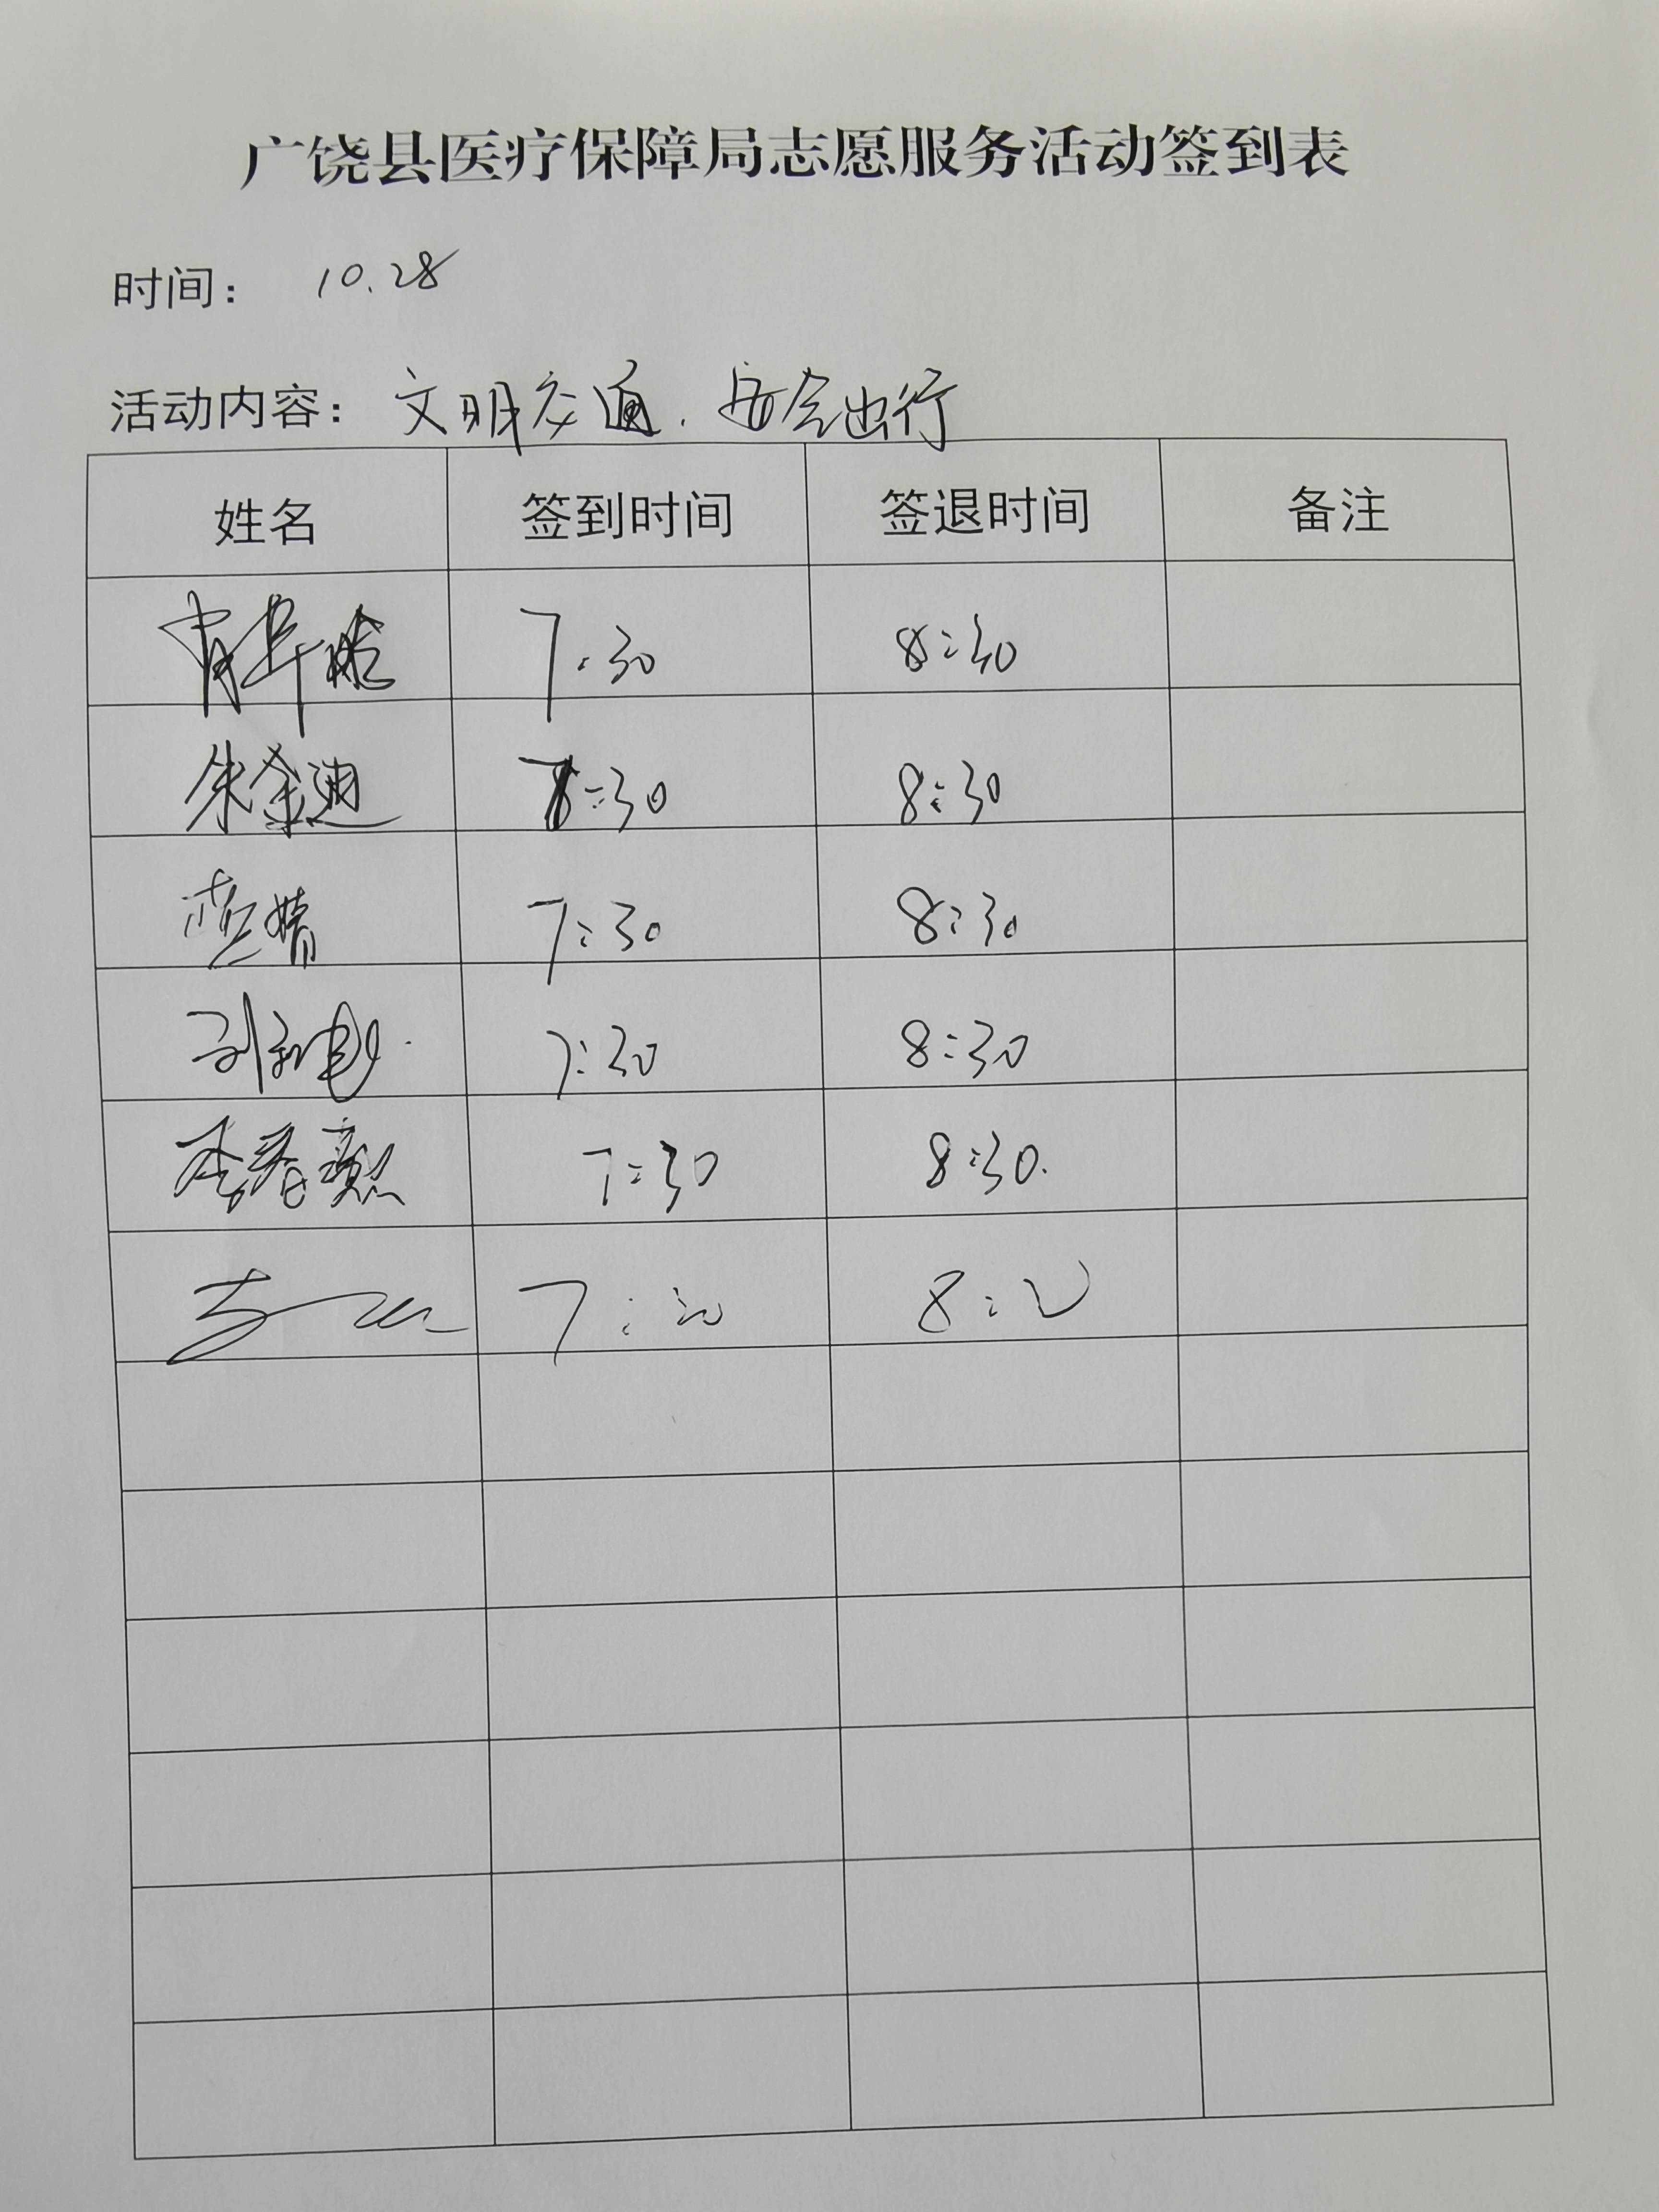 广饶县医疗保障局志愿服务活动签到表
时间： 10.28
活动内容：文明交通.安全出行
姓名 签到时间 签退时间 备注
7:30 8:30
朱金迪 7:30 8:30
7:30 8:30
7:30 8:30
李春 7:30 8:30.
7:30 8: